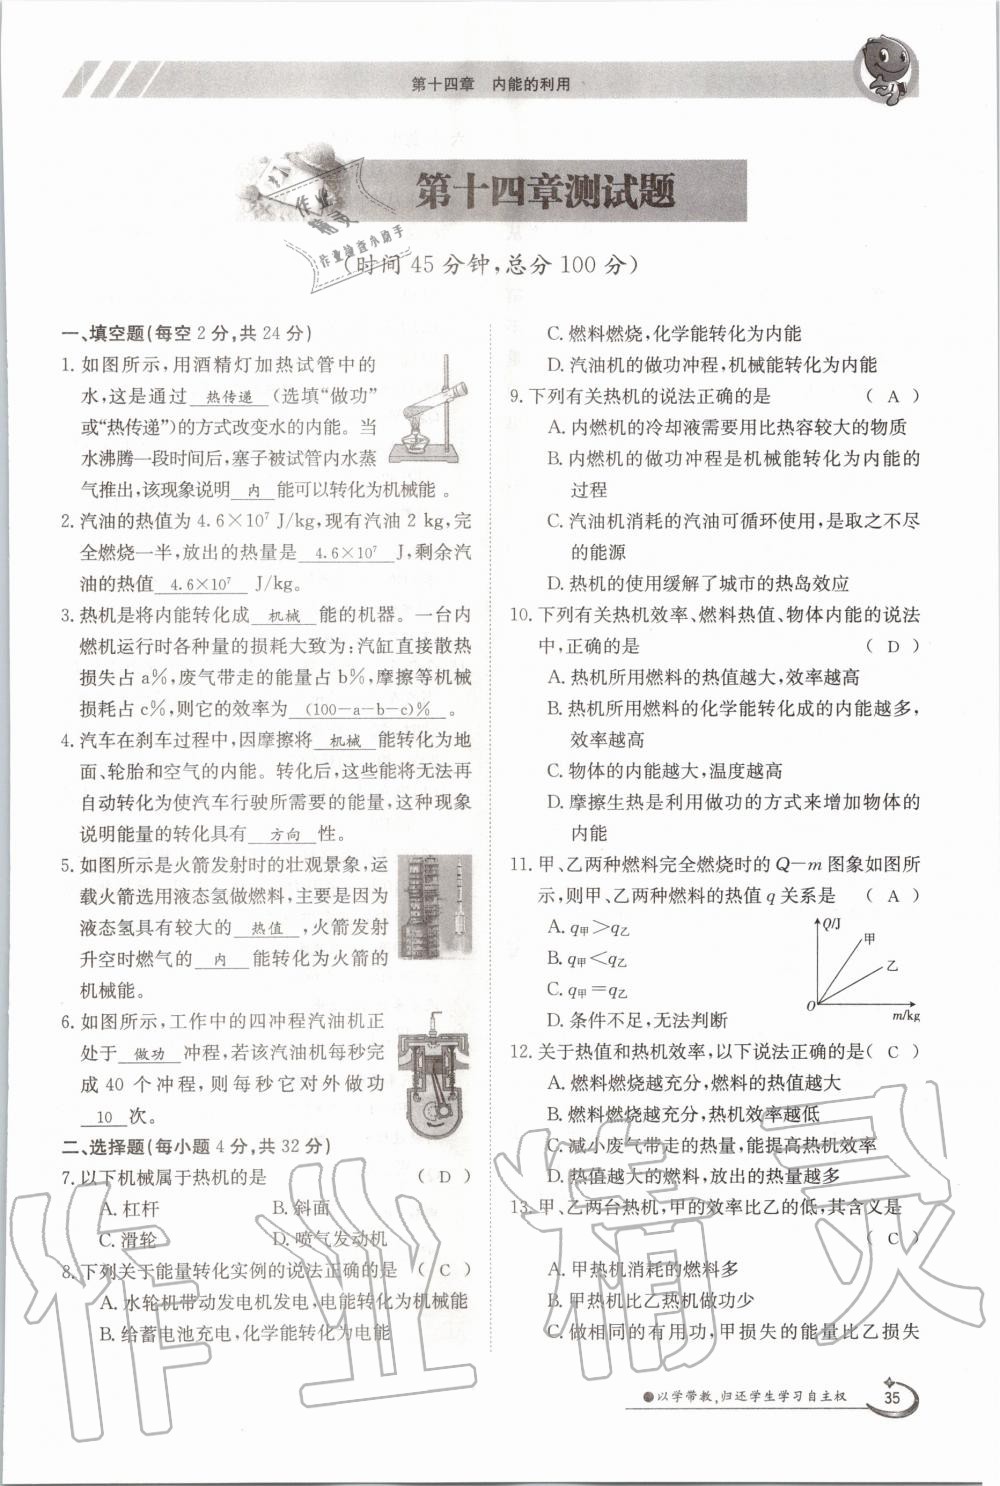 第十四章 内能的利用
第十四章测试题
作业
精灵
作业检查小助手
(时间45分钟,总分100分)
一、填空题(每空2分,共24分)
1. 如图所示,用酒精灯加热试管中的
水,这是通过 热传递 (选填“做功”
或“热传递”)的方式改变水的内能。当
水沸腾一段时间后,塞子被试管内水蒸
气推出,该现象说明 内 能可以转化为机械能 。
2. 汽油的热值为4.6×10⁷ J/kg,现有汽油2 kg,完
全燃烧一半,放出的热量是 4.6×10⁷ J,剩余汽
油的热值 4.6×10⁷ J/kg。
3. 热机是将内能转化成 机械 能的机器。一台内
燃机运行时各种量的损耗大致为:汽缸直接散热
损失占a%,废气带走的能量占b%,摩擦等机械
损耗占c%,则它的效率为 (100-a-b-c)% 。
4. 汽车在刹车过程中,因摩擦将 机械 能转化为地
面、轮胎和空气的内能。转化后,这些能将无法再
自动转化为使汽车行驶所需要的能量,这种现象
说明能量的转化具有 方向 性。
5. 如图所示是火箭发射时的壮观景象,运
载火箭选用液态氢做燃料,主要是因为
液态氢具有较大的 热值 ,火箭发射
升空时燃气的 内 能转化为火箭的
机械能。
6. 如图所示,工作中的四冲程汽油机正
处于 做功 冲程,若该汽油机每秒完
成40个冲程,则每秒它对外做功
10 次。
二、选择题(每小题4分,共32分)
7. 以下机械属于热机的是 ( D )
A. 杠杆 B. 斜面
C. 滑轮 D. 喷气发动机
8. 下列关于能量转化实例的说法正确的是 ( C )
A. 水轮机带动发电机发电,电能转化为机械能
B. 给蓄电池充电,化学能转化为电能
C. 燃料燃烧,化学能转化为内能
D. 汽油机的做功冲程,机械能转化为内能
9. 下列有关热机的说法正确的是 ( A )
A. 内燃机的冷却液需要用比热容较大的物质
B. 内燃机的做功冲程是机械能转化为内能的
过程
C. 汽油机消耗的汽油可循环使用,是取之不尽
的能源
D. 热机的使用缓解了城市的热岛效应
10. 下列有关热机效率、燃料热值、物体内能的说法
中,正确的是 ( D )
A. 热机所用燃料的热值越大,效率越高
B. 热机所用燃料的化学能转化成的内能越多,
效率越高
C. 物体的内能越大,温度越高
D. 摩擦生热是利用做功的方式来增加物体的
内能
11. 甲、乙两种燃料完全燃烧时的Q-m图象如图所
示,则甲、乙两种燃料的热值q关系是 ( A )
A. q甲>q乙
B. q甲<q乙
C. q甲=q乙
D. 条件不足,无法判断
Q/J
甲
乙
O
m/kg
12. 关于热值和热机效率,以下说法正确的是( C )
A. 燃料燃烧越充分,燃料的热值越大
B. 燃料燃烧越充分,热机效率越低
C. 减小废气带走的热量,能提高热机效率
D. 热值越大的燃料,放出的热量越多
13. 甲、乙两台热机,甲的效率比乙的低,其含义是
( C )
A. 甲热机消耗的燃料多
B. 甲热机比乙热机做功少
C. 做相同的有用功,甲损失的能量比乙损失
以学带教,归还学生学习自主权
35
作业精灵